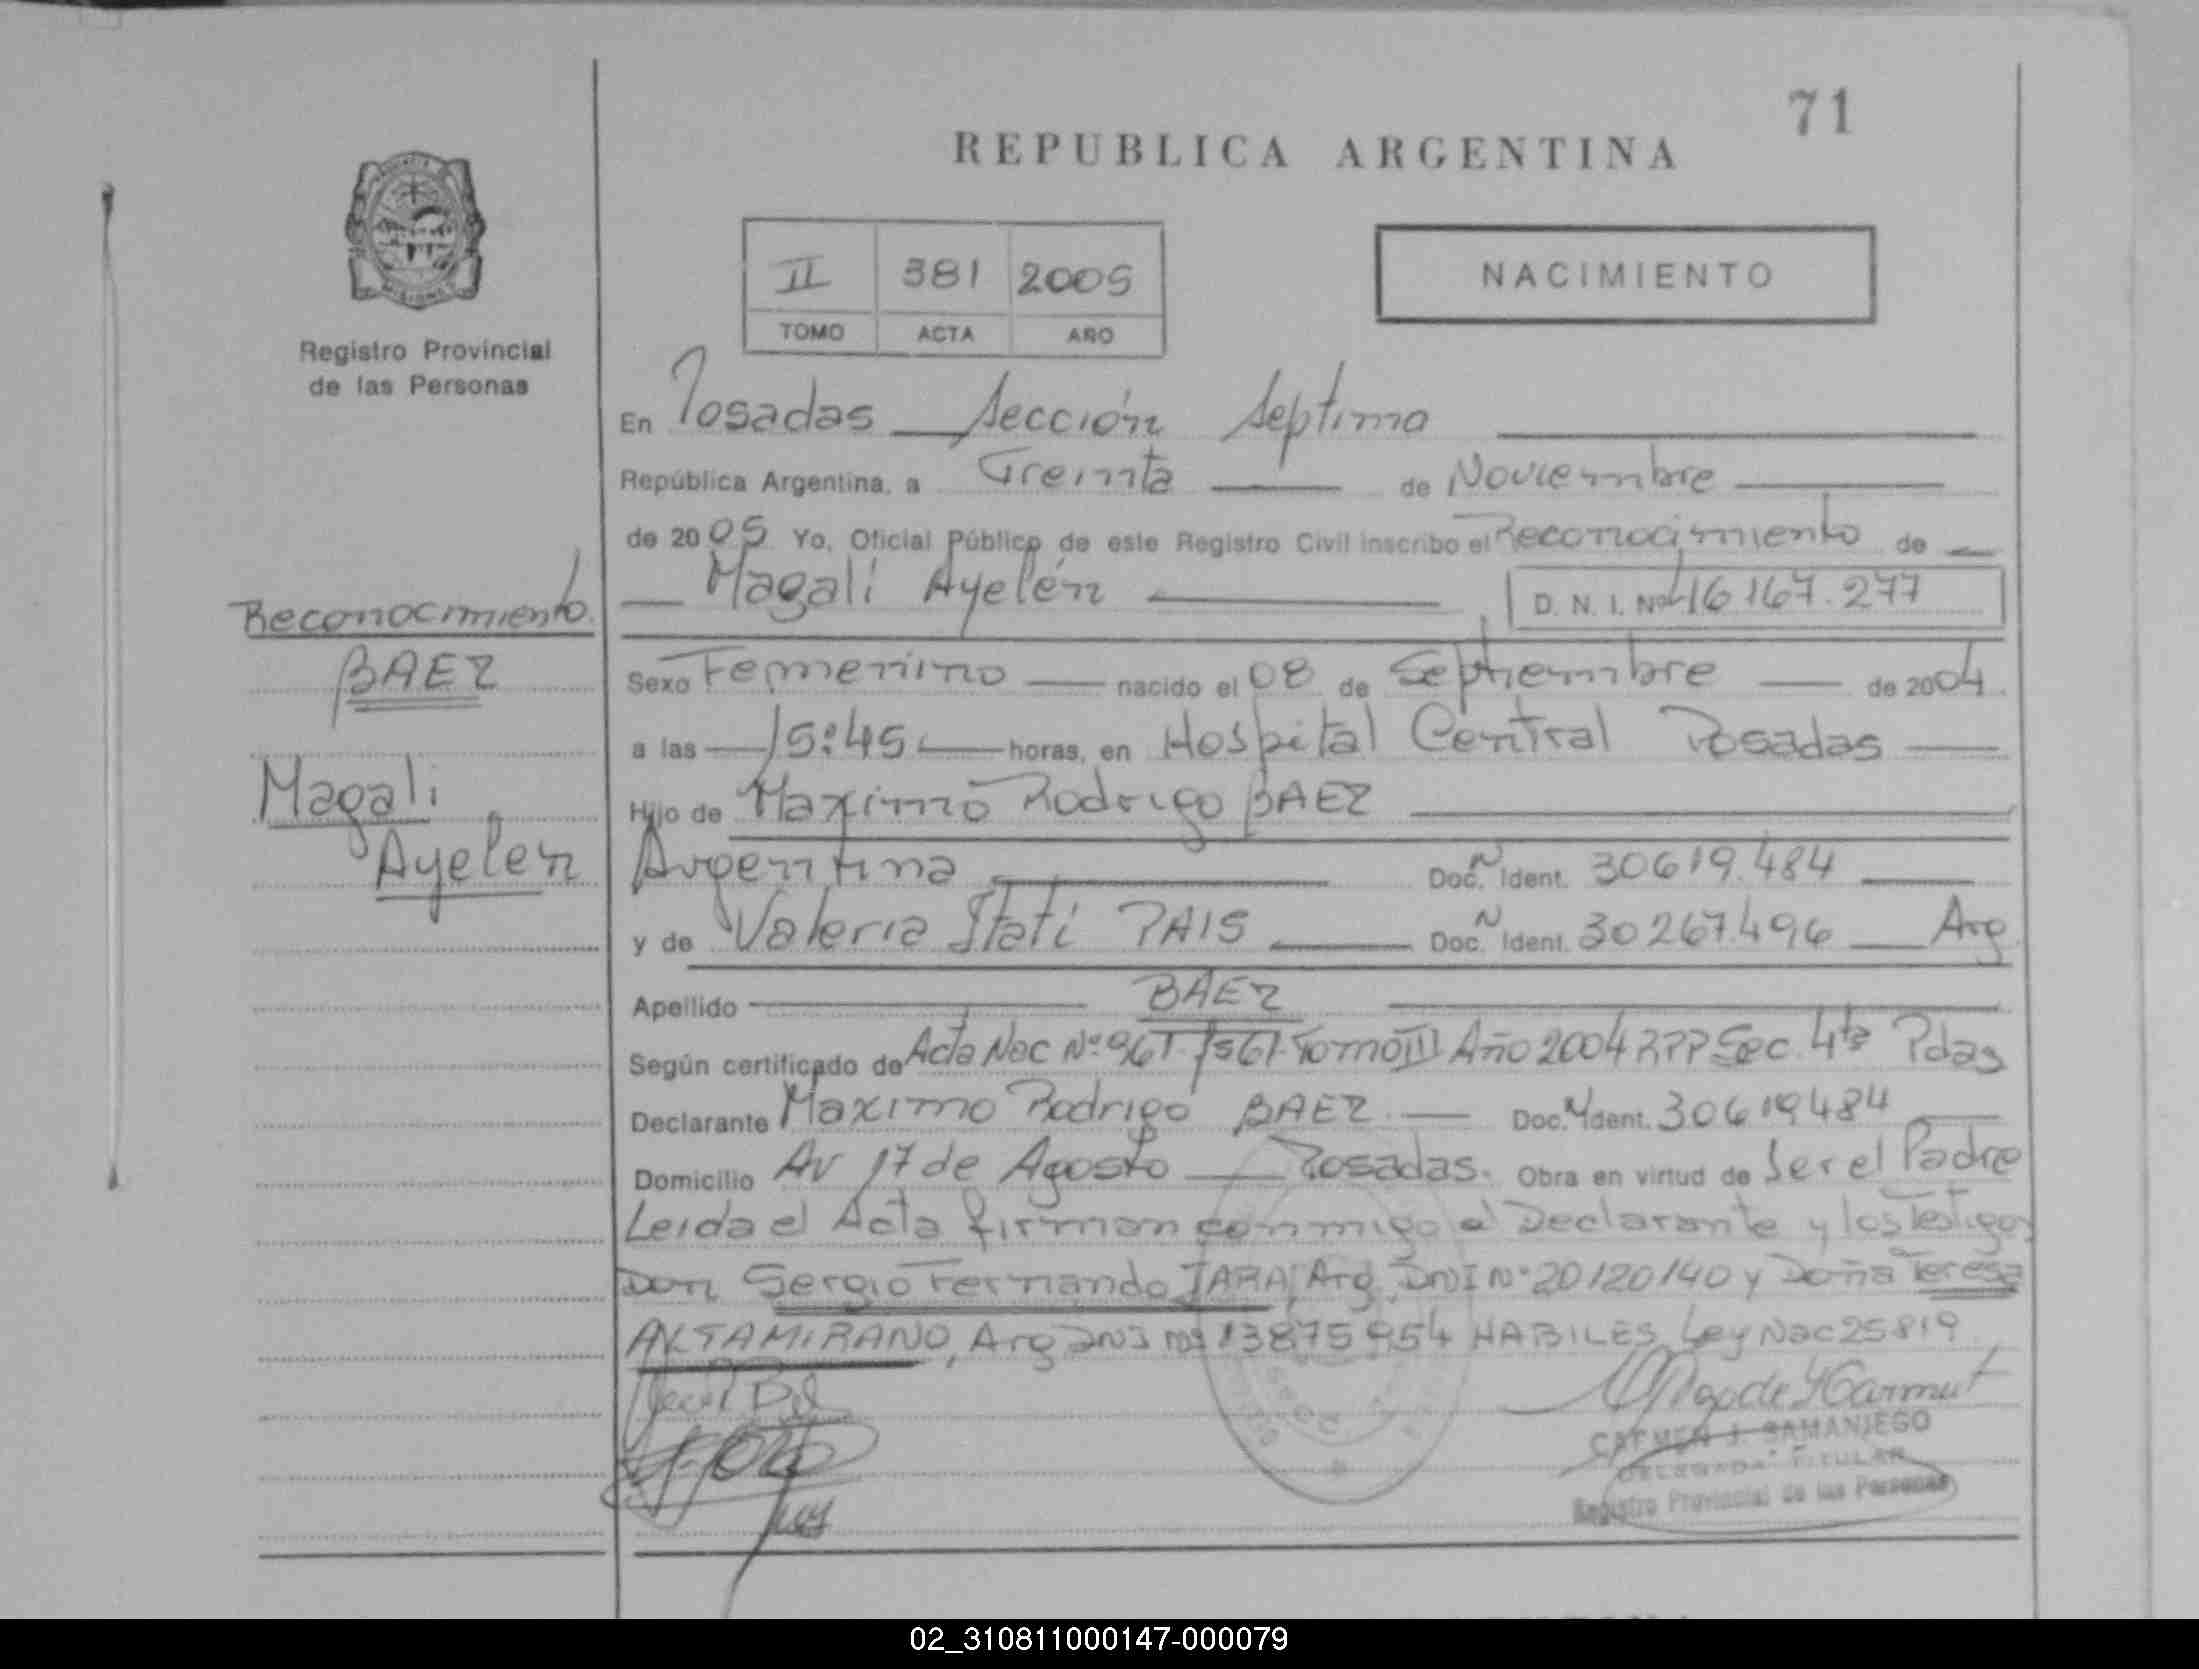 71
REPUBLICA ARGENTINA
II 381 2005
TOMO ACTA AÑO
NACIMIENTO
Registro Provincial
de las Personas
En Posadas Sección Septima
República Argentina, a Treinta de Noviembre
de 2005 Yo, Oficial Público de este Registro Civil inscribo el Reconocimiento de
Magali Ayelén D. N. I. Nº 46167.277
Reconocimiento
BAEZ
Magali
Ayelen
Sexo Femenino nacido el 08 de Septiembre de 2004
a las 15:45 horas, en Hospital Central Posadas
Hijo de Maximo Rodrigo BAEZ
Argentina Doc. N Ident. 30619.484
y de Valeria Itati PAIS Doc. N Ident. 30267.496 Arg
Apellido BAEZ
Según certificado de Acta Nac Nº 961 Tomo III Año 2004 RPP Sec. 4ta Pdas
Declarante Maximo Rodrigo BAEZ Doc. N Ident. 30619484
Domicilio Av 17 de Agosto Posadas. Obra en virtud de Ser el Padre
Leida el Acta firman conmigo el Declarante y los Testigos
Don Sergio Fernando JARA, Arg, DNI Nº 20120140 y Doña Teresa
ALTAMIRANO, Arg DNI Nº 13875954 HABILES, Ley Nac 25819
CARMEN J. SAMANIEGO
DELEGADA TITULAR
Registro Provincial de las Personas
02_310811000147-000079